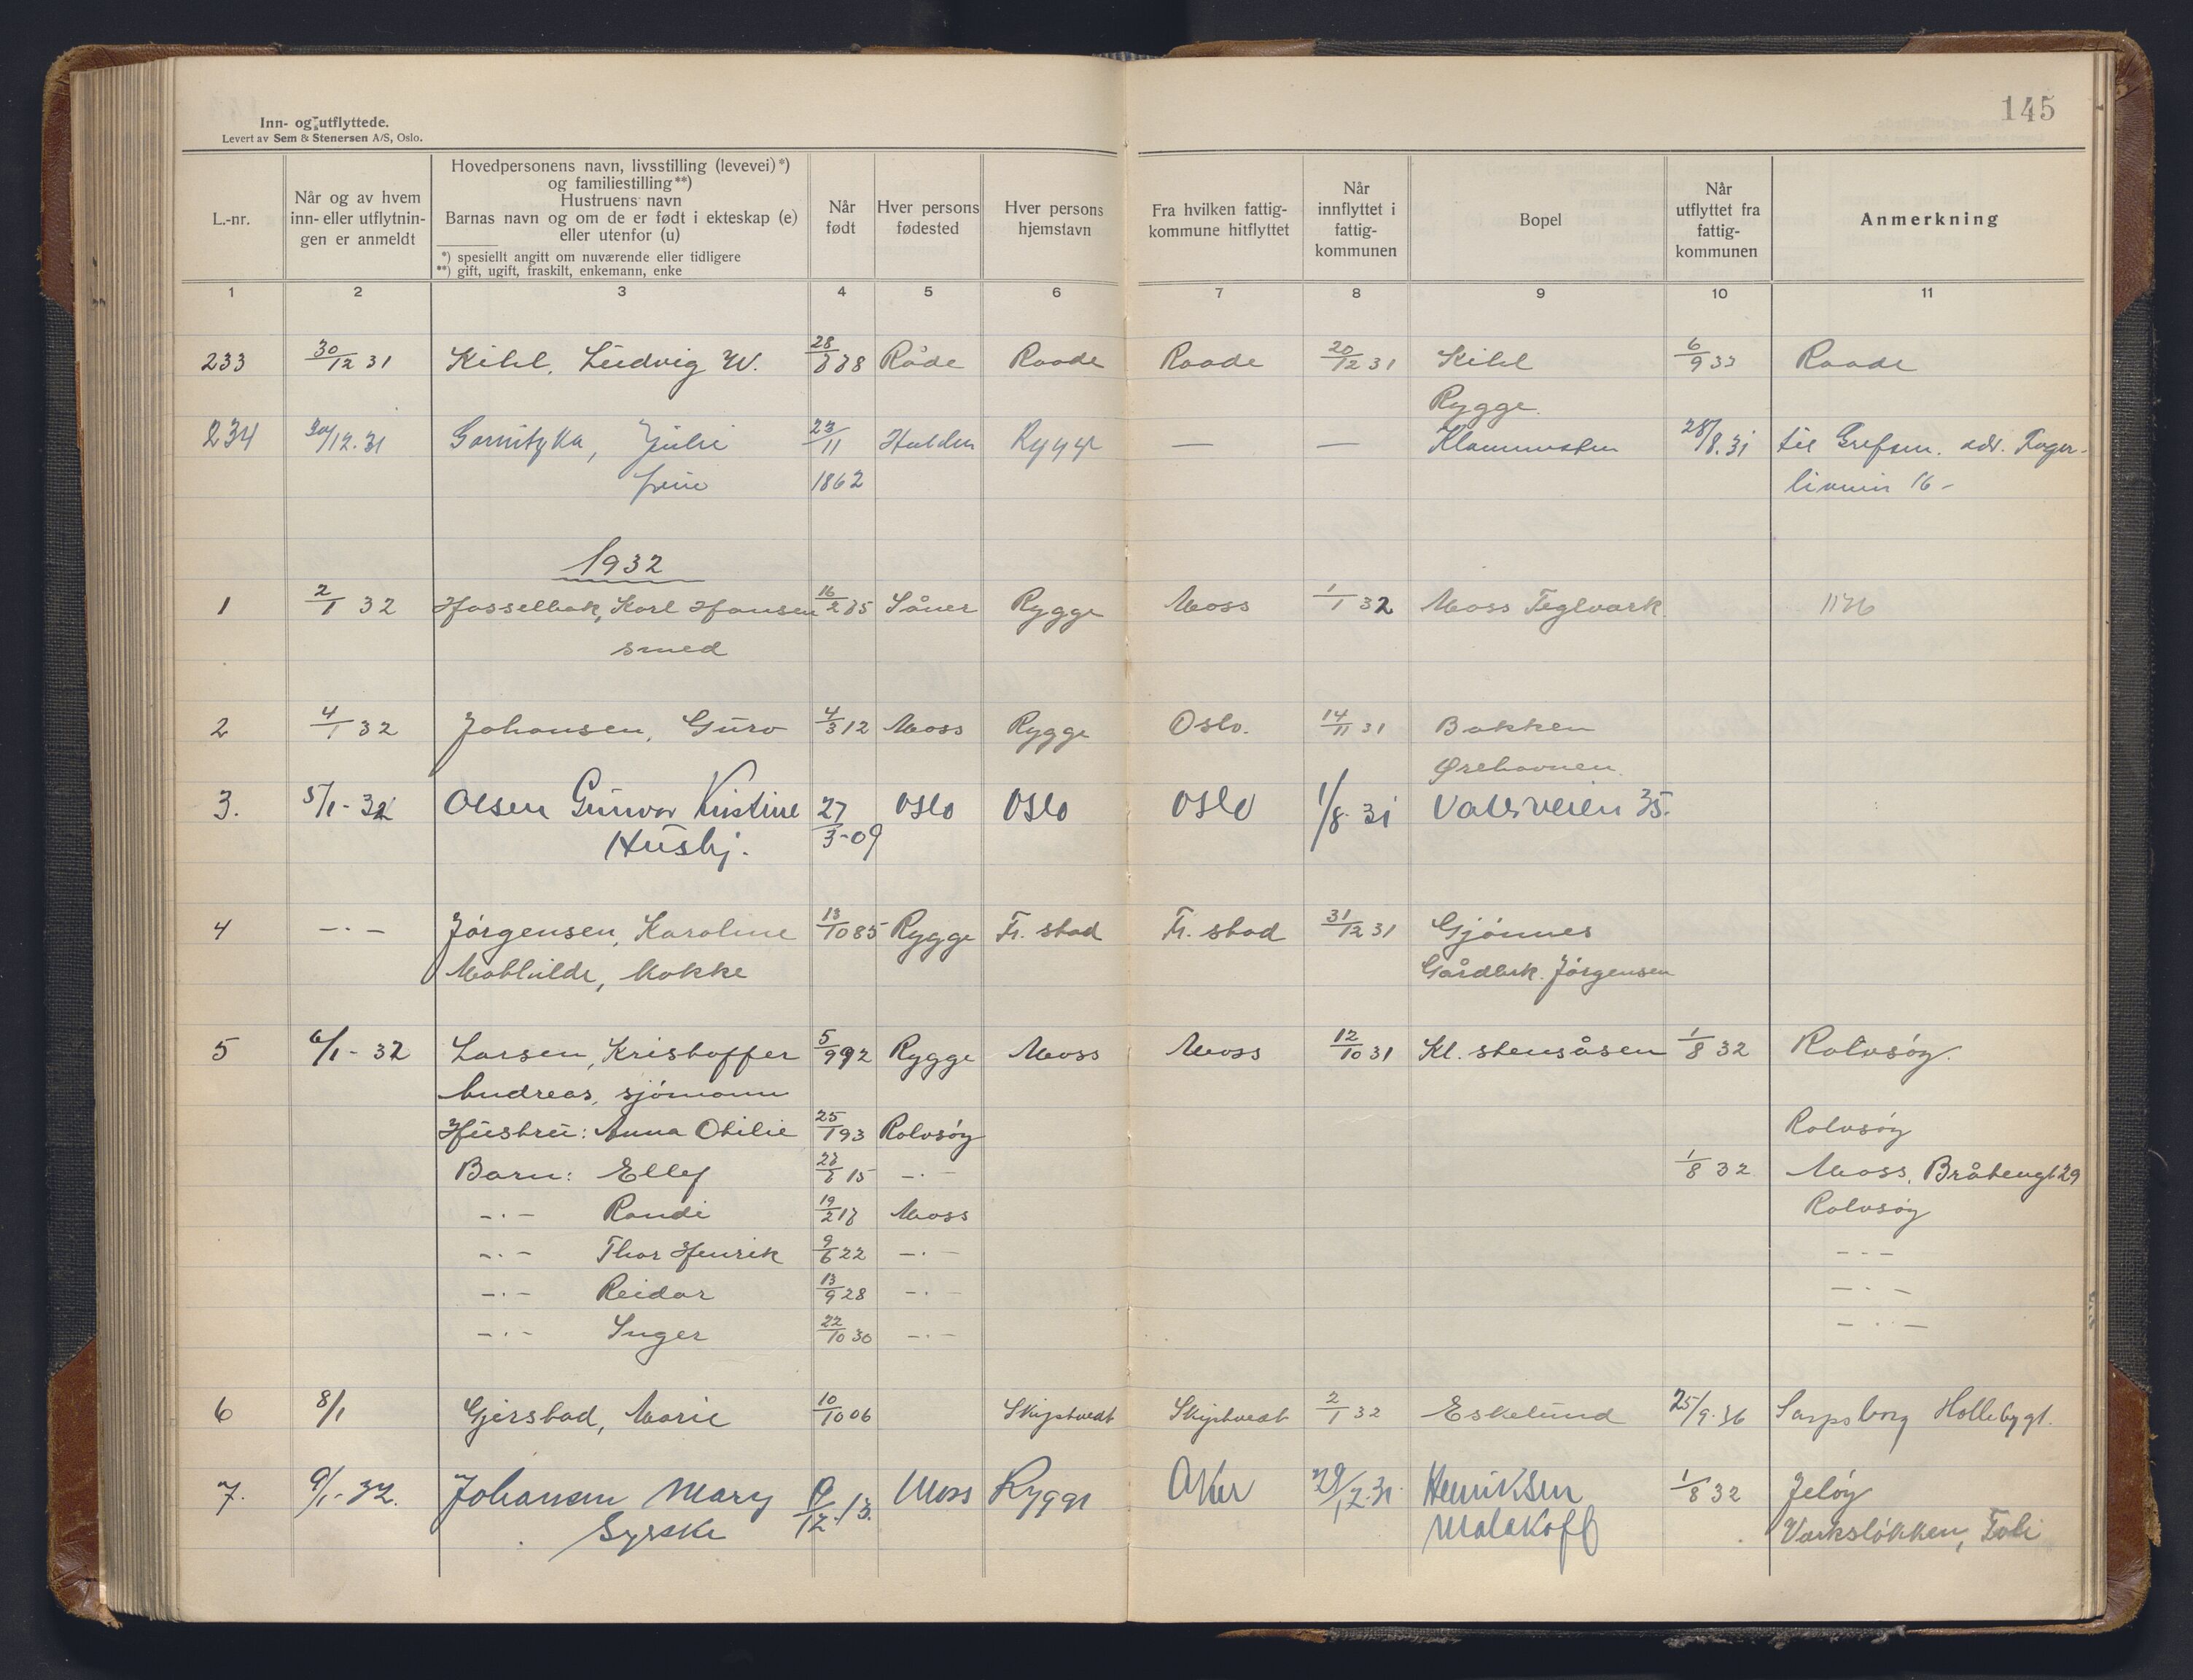 145
Inn- og utflyttede.
Levert av Sem & Stenersen A/S, Oslo.
L.-nr.
Når og av hvem
inn- eller utflytnin-
gen er anmeldt
Hovedpersonens navn, livsstilling (levevei)*)
og familiestilling**)
Hustruens navn
Barnas navn og om de er født i ekteskap (e)
eller utenfor (u)
*) spesiellt angitt om nuværende eller tidligere
**) gift, ugift, fraskilt, enkemann, enke
Når
født
Hver persons
fødested
Hver persons
hjemstavn
Fra hvilken fattig-
kommune hitflyttet
Når
innflyttet i
fattig-
kommunen
Bopel
Når
utflyttet fra
fattig-
kommunen
Anmerkning
1 2 3 4 5 6 7 8 9 10 11
233 30/12 31 Kihl, Ludvig W. Råde Raade Raade 20/12 31 Kihl 6/9 33 Raade
Rygge
234 30/12.31 Julie 23/11 Halden Rygge — — 28/8.31 til Grefsen. adr.
1862 16 –
1932
1 2/1 32 Hasselbak, Karl Hansen 16/2 85 Såner Rygge Moss 1/1 32 Moss Teglverk
smed
2 4/1 32 Johansen, Guro 4/3 12 Moss Rygge Oslo. 14/11 31 Bakken
Ørehavnen.
3. 5/1 - 32 Olsen Gunvor Kristine 27/3-09 Oslo Oslo Oslo 1/8. 31 Valerveien 35.
Hushj.
4 – · – Jørgensen, Karoline 13/10 85 Rygge Fr. stad Fr. stad 31/12 31 Gjønnes
Mathilde, Kokke Gårdbrk. Jørgensen
5 6/1 - 32 Larsen, Kristoffer 5/9 92 Rygge Moss Moss 12/10 31 Kl. stensåsen 1/8 32 Rolvsøy.
Andreas, sjømann
Hustru: Anna Otilie 25/1 93 Rolvsøy Rolvsøy
Barn: Ellef – · – 1/8 32 Moss, Bråtengt 29
– · – Randi Moss Rolvsøy
– · – Thor Henrik 9/6 22 – · – – · –
– · – Reidar 13/9 28 – · – – · –
– · – Inger 22/10 30 – · – – · –
6 8/1 Gjerstad, Marie 10/10 06 Skiptvedt Skiptvedt 2/1 32 Eskelund 25/9.36 Sarpsborg
7. 9/1 - 32. Johansen Mary Moss Rygge Aker 29/12.31. Henriksen 1/8 32 Jeløy
Syerske Malakoff Verksløkken,